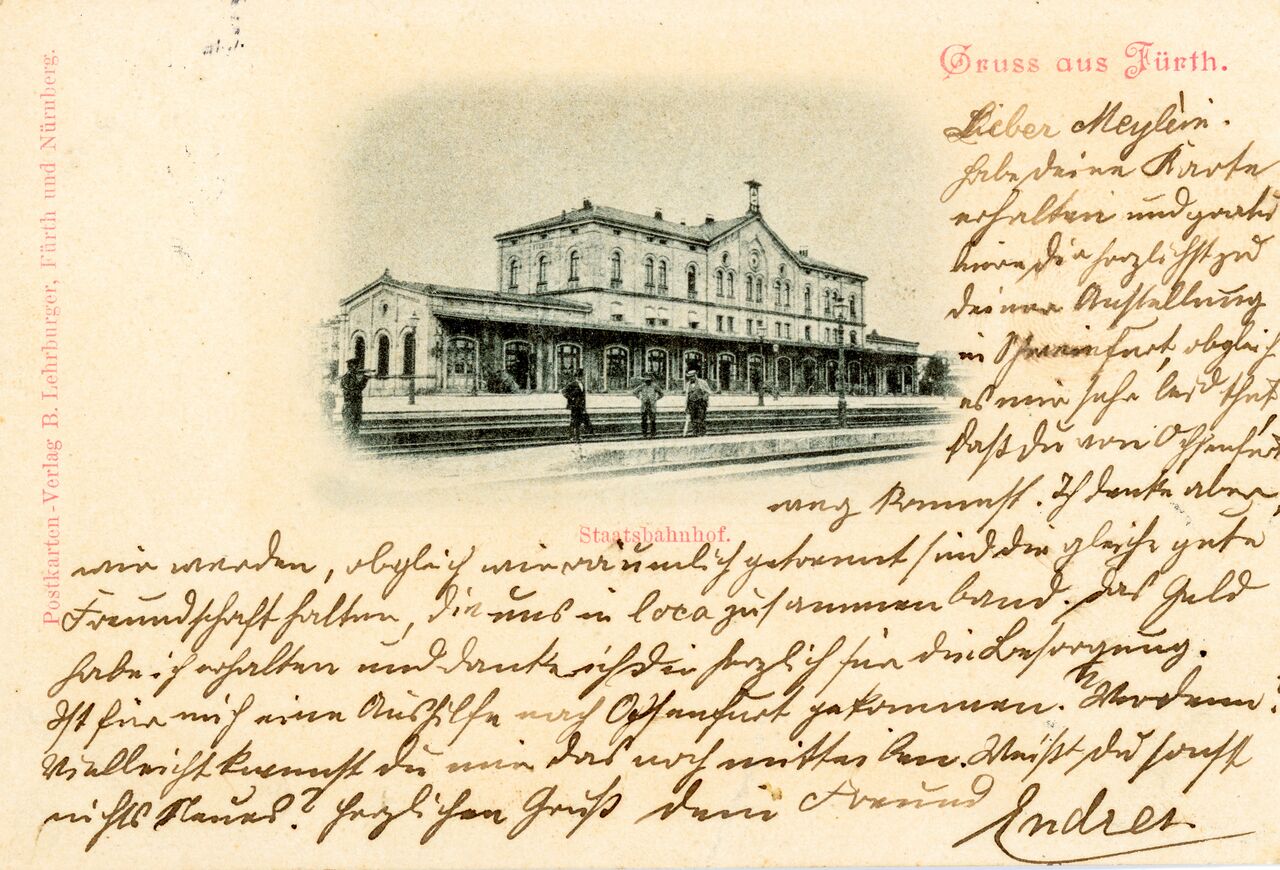 Gruss aus Fürth.
Postkarten-Verlag B. Lehrburger, Fürth und Nürnberg.
Lieber Meylein.
habe deine Karte
erhalten und gratu
liere dir herzlichst zu
deiner Anstellung
in Schweinfurt, obgleich
es mir sehr leid thut,
daß du von Ochsenfurt
weg kommst. Ich denke aber,
Staatsbahnhof.
wir werden, obgleich wir räumlich getrennt sind die gleiche gute
Freundschaft halten, die uns in loco zusammenband. Das Geld
habe ich erhalten und danke ich dir herzlich für die Besorgung.
Ist für mich eine Aushilfe nach Ochsenfurt gekommen? Wer denn?
Vielleicht kannst du mir das noch mitteilen. Weißt du sonst
nichts Neues? Herzlichen Gruß dein Freund
Endres